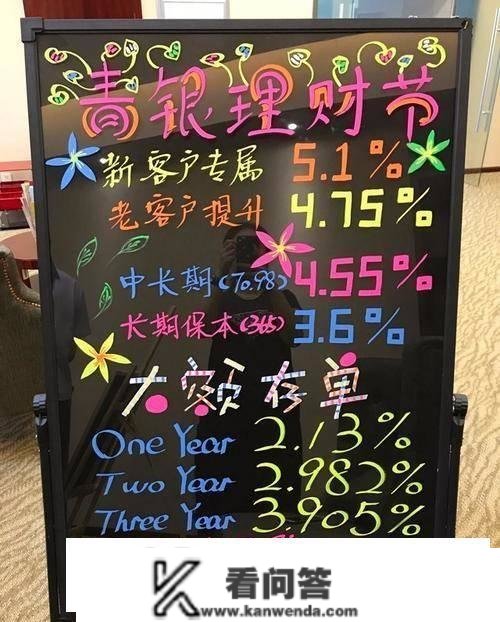 青银理财节
新客户专属 5.1%
老客户提升 4.75%
中长期(70.98) 4.55%
长期保本(365) 3.6%
大额存单
One Year 2.13%
Two Year 2.982%
Three Year 3.905%
看问答
www.kanwenda.com